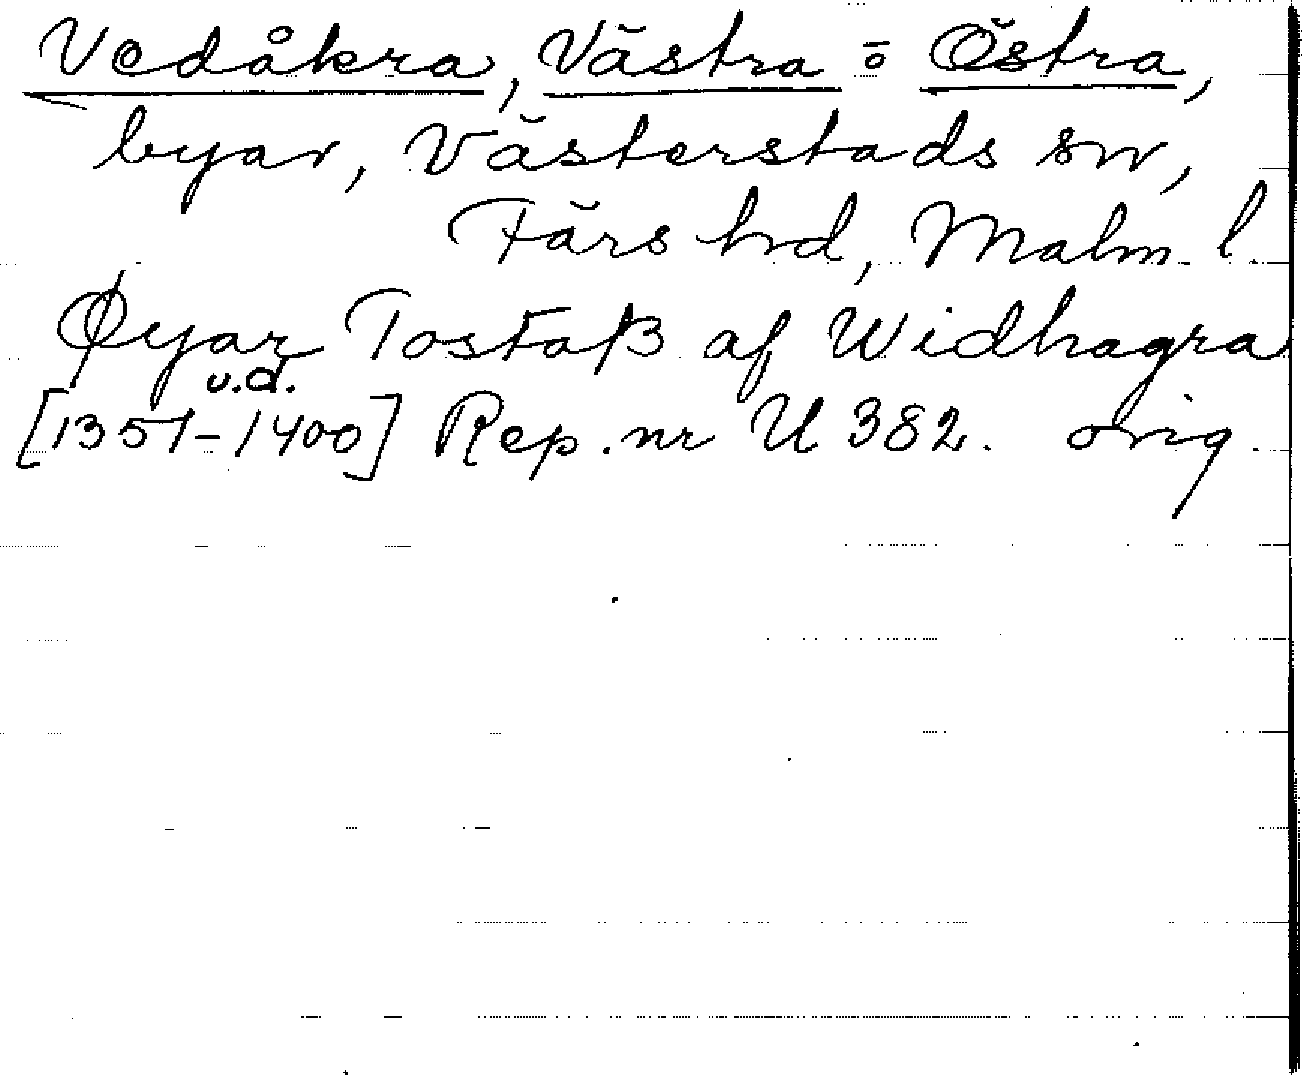 Vedåkra, Västra o Östra,
byar, Västerstads sn,
Färs hd, Malm. l.
Øyar Tostaß af Widhagra
u.d.
[1351-1400] Rep. nr U 382. orig